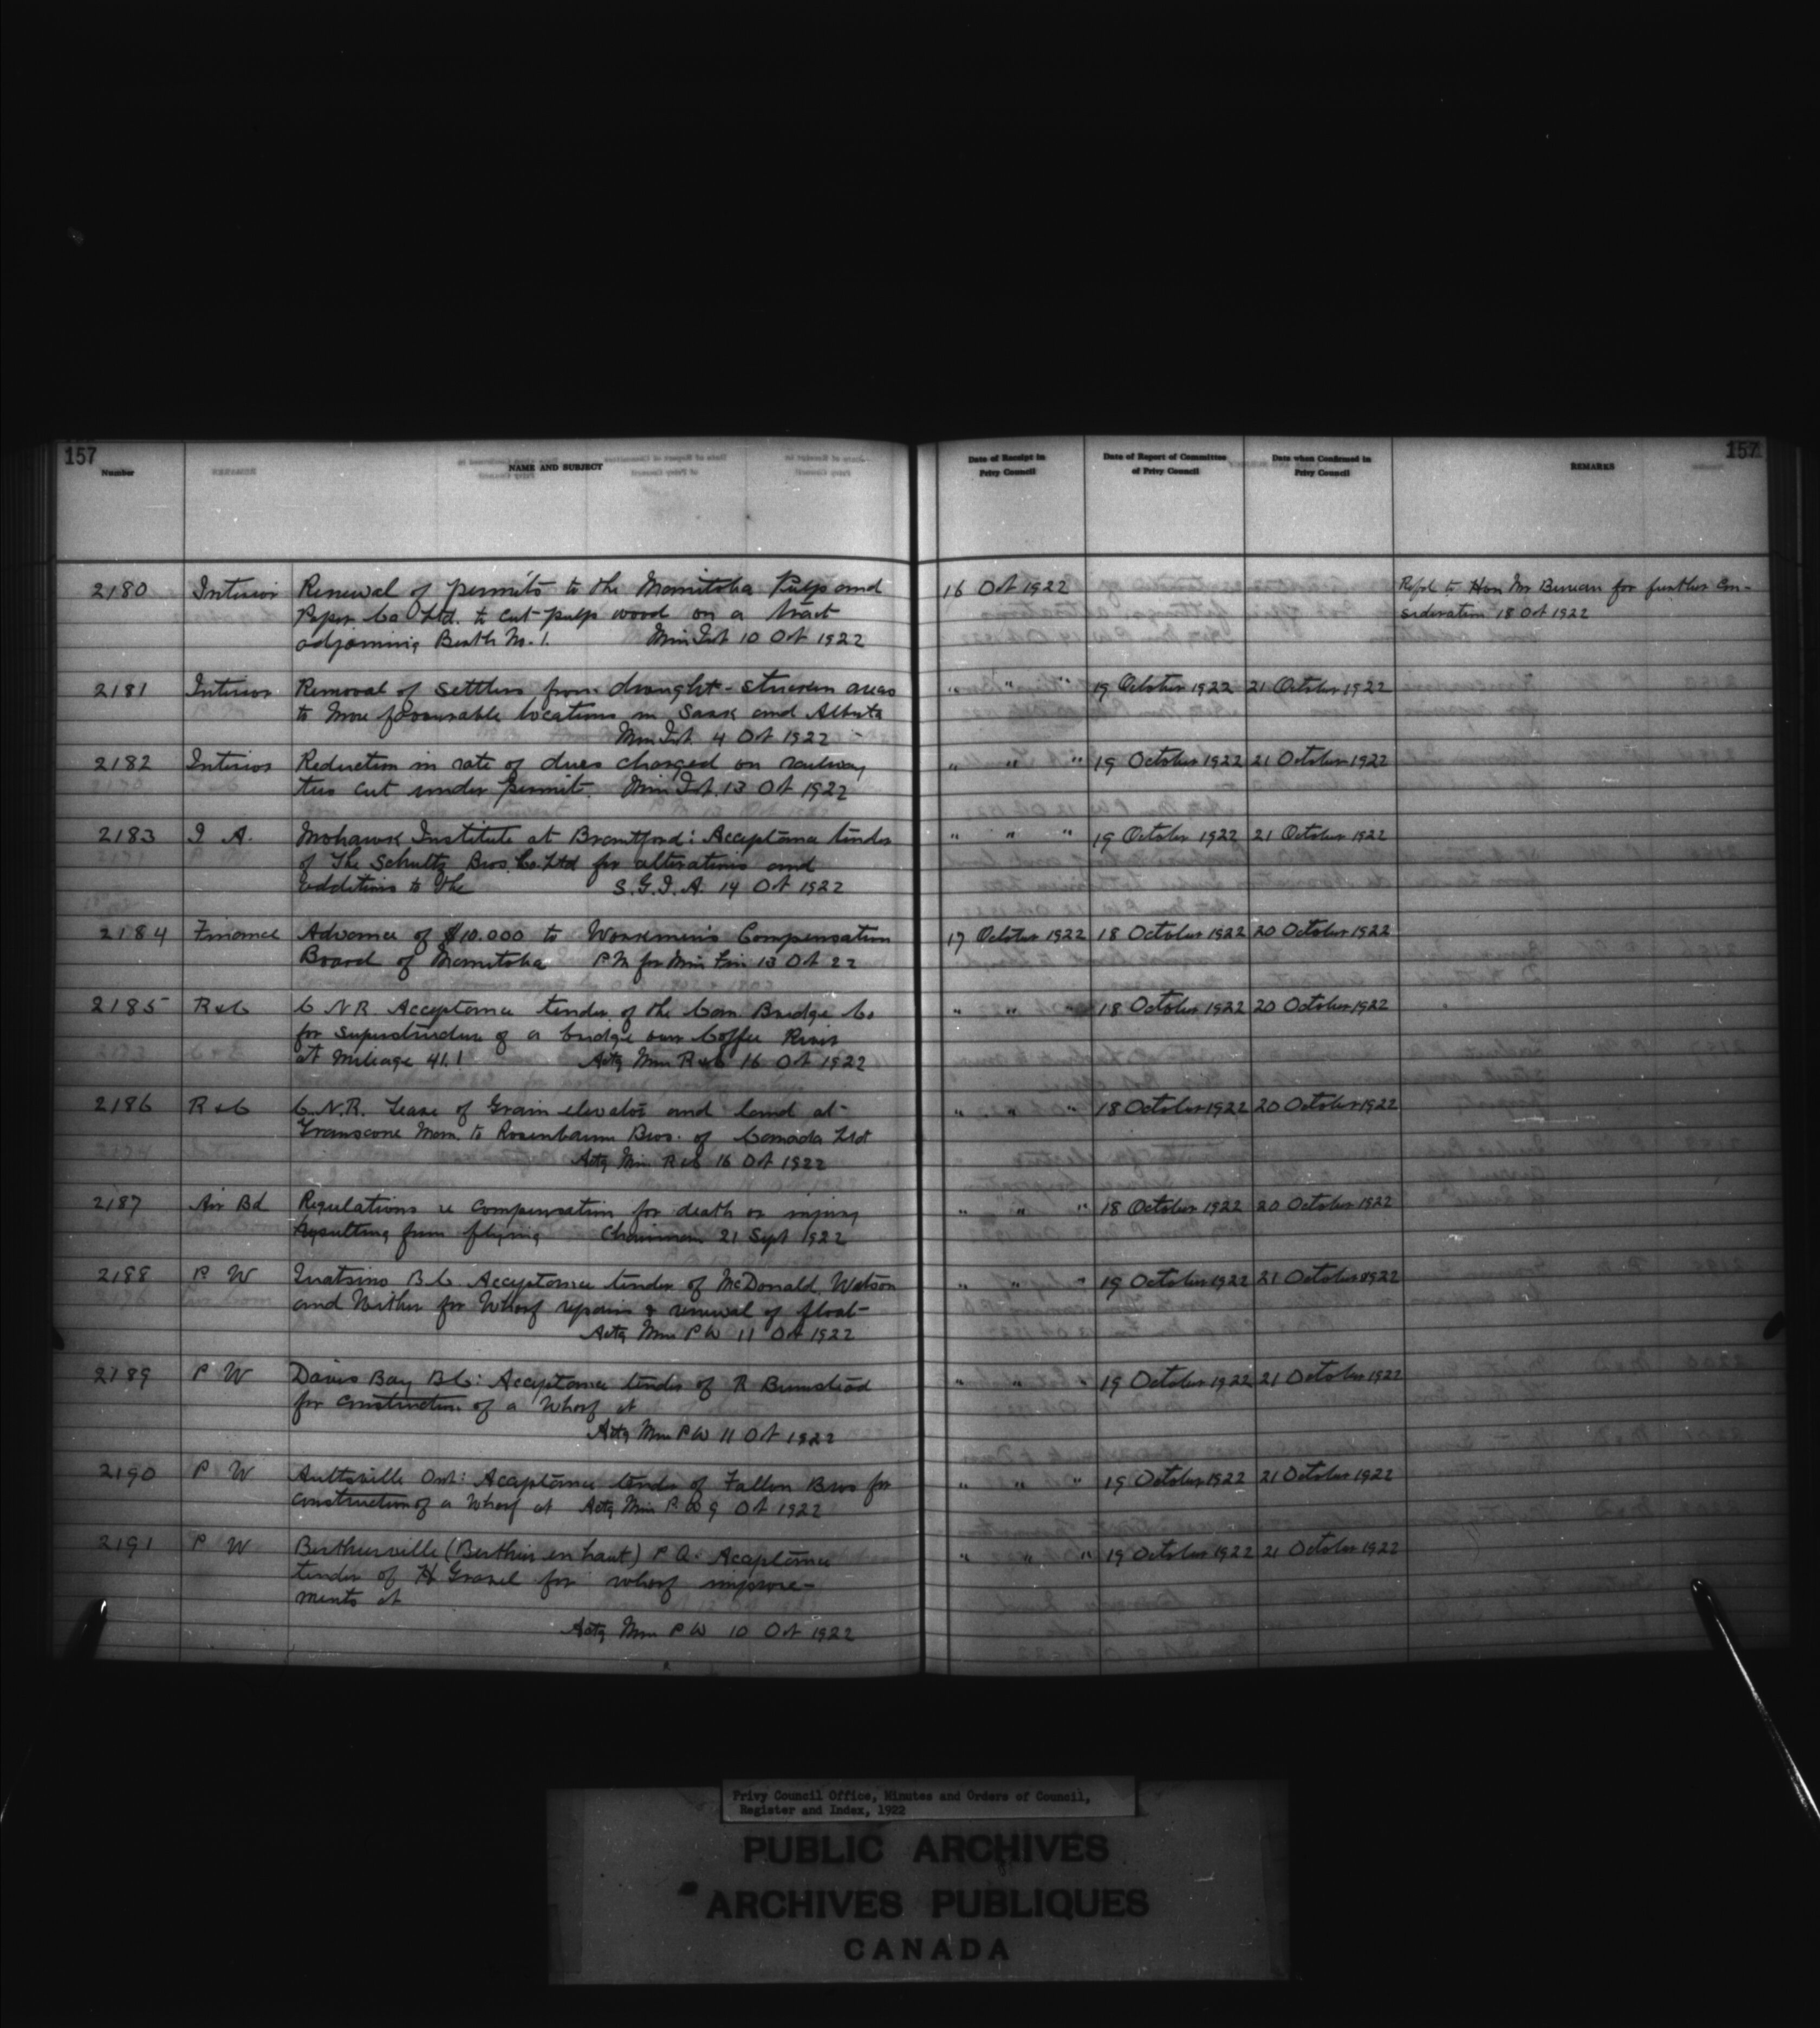 157
157
Number
NAME AND SUBJECT
Date of Receipt in Privy Council
Date of Report of Committee of Privy Council
Date when Confirmed in Privy Council
REMARKS
2180 Interior Renewal of permits to the Manitoba Pulp and 16 Oct 1922 Refd to Hon Mr Bureau for further con-
Paper Co Ltd. to cut pulp wood on a tract sideration 18 Oct 1922
adjoining Berth No. 1. Min Int 10 Oct 1922
2181 Interior Removal of settlers from drought-stricken areas " " " 19 October 1922 21 October 1922
to more favourable locations in Sask and Alberta
Min Int 4 Oct 1922
2182 Interior Reduction in rate of dues charged on railway " " " 19 October 1922 21 October 1922
ties cut under permit. Min Int. 13 Oct 1922
2183 I A. Mohawk Institute at Brantford: Acceptance tender " " " 19 October 1922 21 October 1922
of The Schultz Bros. Co. Ltd for alterations and
additions to the S.G.I.A. 14 Oct 1922
2184 Finance Advance of $10.000 to Workmen's Compensation 17 October 1922 18 October 1922 20 October 1922
Board of Manitoba P.M for Min Fin 13 Oct 22
2185 R & C C N R Acceptance tender of the Can. Bridge Co " " " 18 October 1922 20 October 1922
for superstructure of a bridge over Coffee River
at mileage 41.1 Actg Min R & C 16 Oct 1922
2186 R & C C.N.R. Lease of Grain elevator and land at " " " 18 October 1922 20 October 1922
Transcona Man. to Rosenbaum Bros. of Canada Ltd
Actg Min R & C 16 Oct 1922
2187 Air Bd Regulations re compensation for death or injury " " " 18 October 1922 20 October 1922
resulting from flying Chairman 21 Sept 1922
2188 P W Quatsino B C Acceptance tender of McDonald, Watson " " " 19 October 1922 21 October 1922
and for Wharf repairs & renewal of float
Actg Min P W 11 Oct 1922
2189 P W Davis Bay B C: Acceptance tender of R Bumstead " " " 19 October 1922 21 October 1922
for construction of a Wharf at
Actg Min P W 11 Oct 1922
2190 P W Aultsville Ont: Acceptance tender of Fallon Bros for " " " 19 October 1922 21 October 1922
construction of a Wharf at Actg Min P W 9 Oct 1922
2191 P W Berthierville (Berthier en haut) P Q: Acceptance " " " 19 October 1922 21 October 1922
tender of H Gravel for wharf improve-
ments at
Actg Min P W 10 Oct 1922
Privy Council Office, Minutes and Orders of Council,
Register and Index, 1922
PUBLIC ARCHIVES
ARCHIVES PUBLIQUES
CANADA